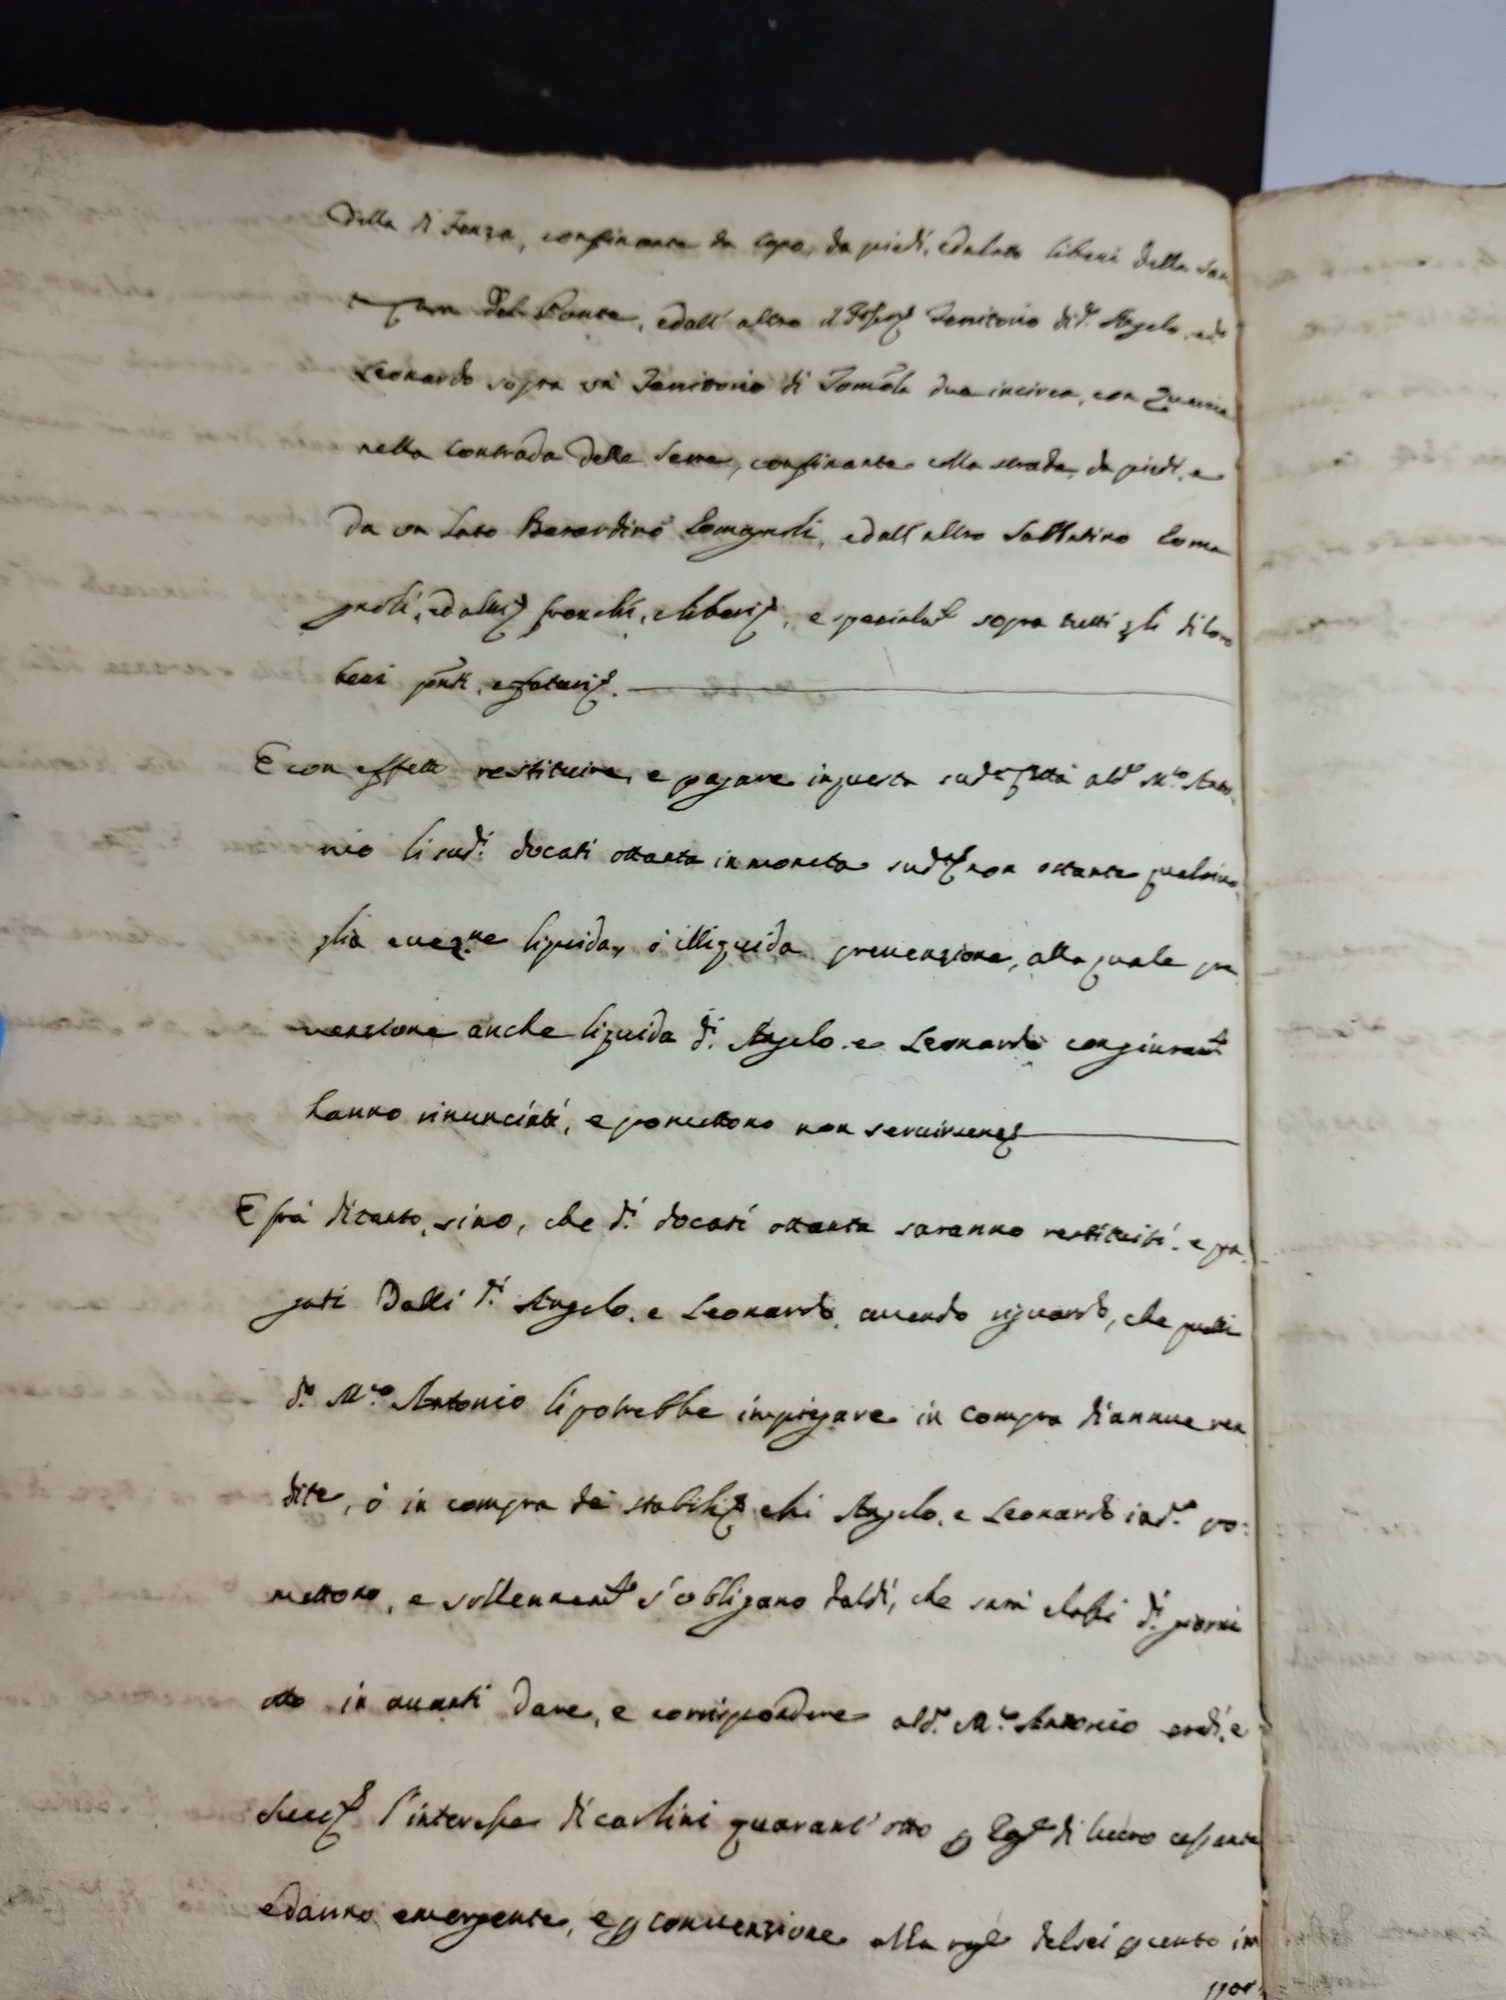 della di Fonza, confinante da capo, da piedi, edalato liberi della San
del Ponte, edall' altro il Territorio di d.º Angelo, ed
Leonardo sopra un Territorio di Tomola due incirca, con Quercie
nella contrada delle Serre, confinante colla strada, da piedi, e
da un lato Berardino Romagnoli, edall' altro Sabbatino Roma
gnoli, ed altri, franchi, e liberi, e specialmt.e sopra tutti gli di loro
beni pnti, e futuri.
E con effetto restituire, e pagare in questa sud.a Città al d.º M.co Anto
nio li sud.i docati ottanta in moneta sud.a non ostante qualsivo
glia eccez.ne liquida, ò illiquida prevenzione, alla quale pre
venzione anche liquida d.i Angelo, e Leonardo con giuramt.o
hanno rinunciato, e promettono non servirsene
E frà ditanto, sino, che d.i docati ottanta saranno restituiti, e pa
gati dalli d.i Angelo, e Leonardo, avendo riguardo, che quelli
d.º M.co Antonio li potrebbe impiegare in compra di annue ren
dite, ò in compra de' stabili, essi Angelo, e Leonardo in d.º pro:
mettono, e sollennemt.e s'obligano dal dì, che sarà elassi d.i giorni
otto in avanti dare, e corrispondere al d.º M.co Antonio eredi, e
succ.i l'interesse di carlini quarant' otto p rag.e di lucro cessante
e danno emergente, e p convenzione alla rag.e del sei p cento im
por